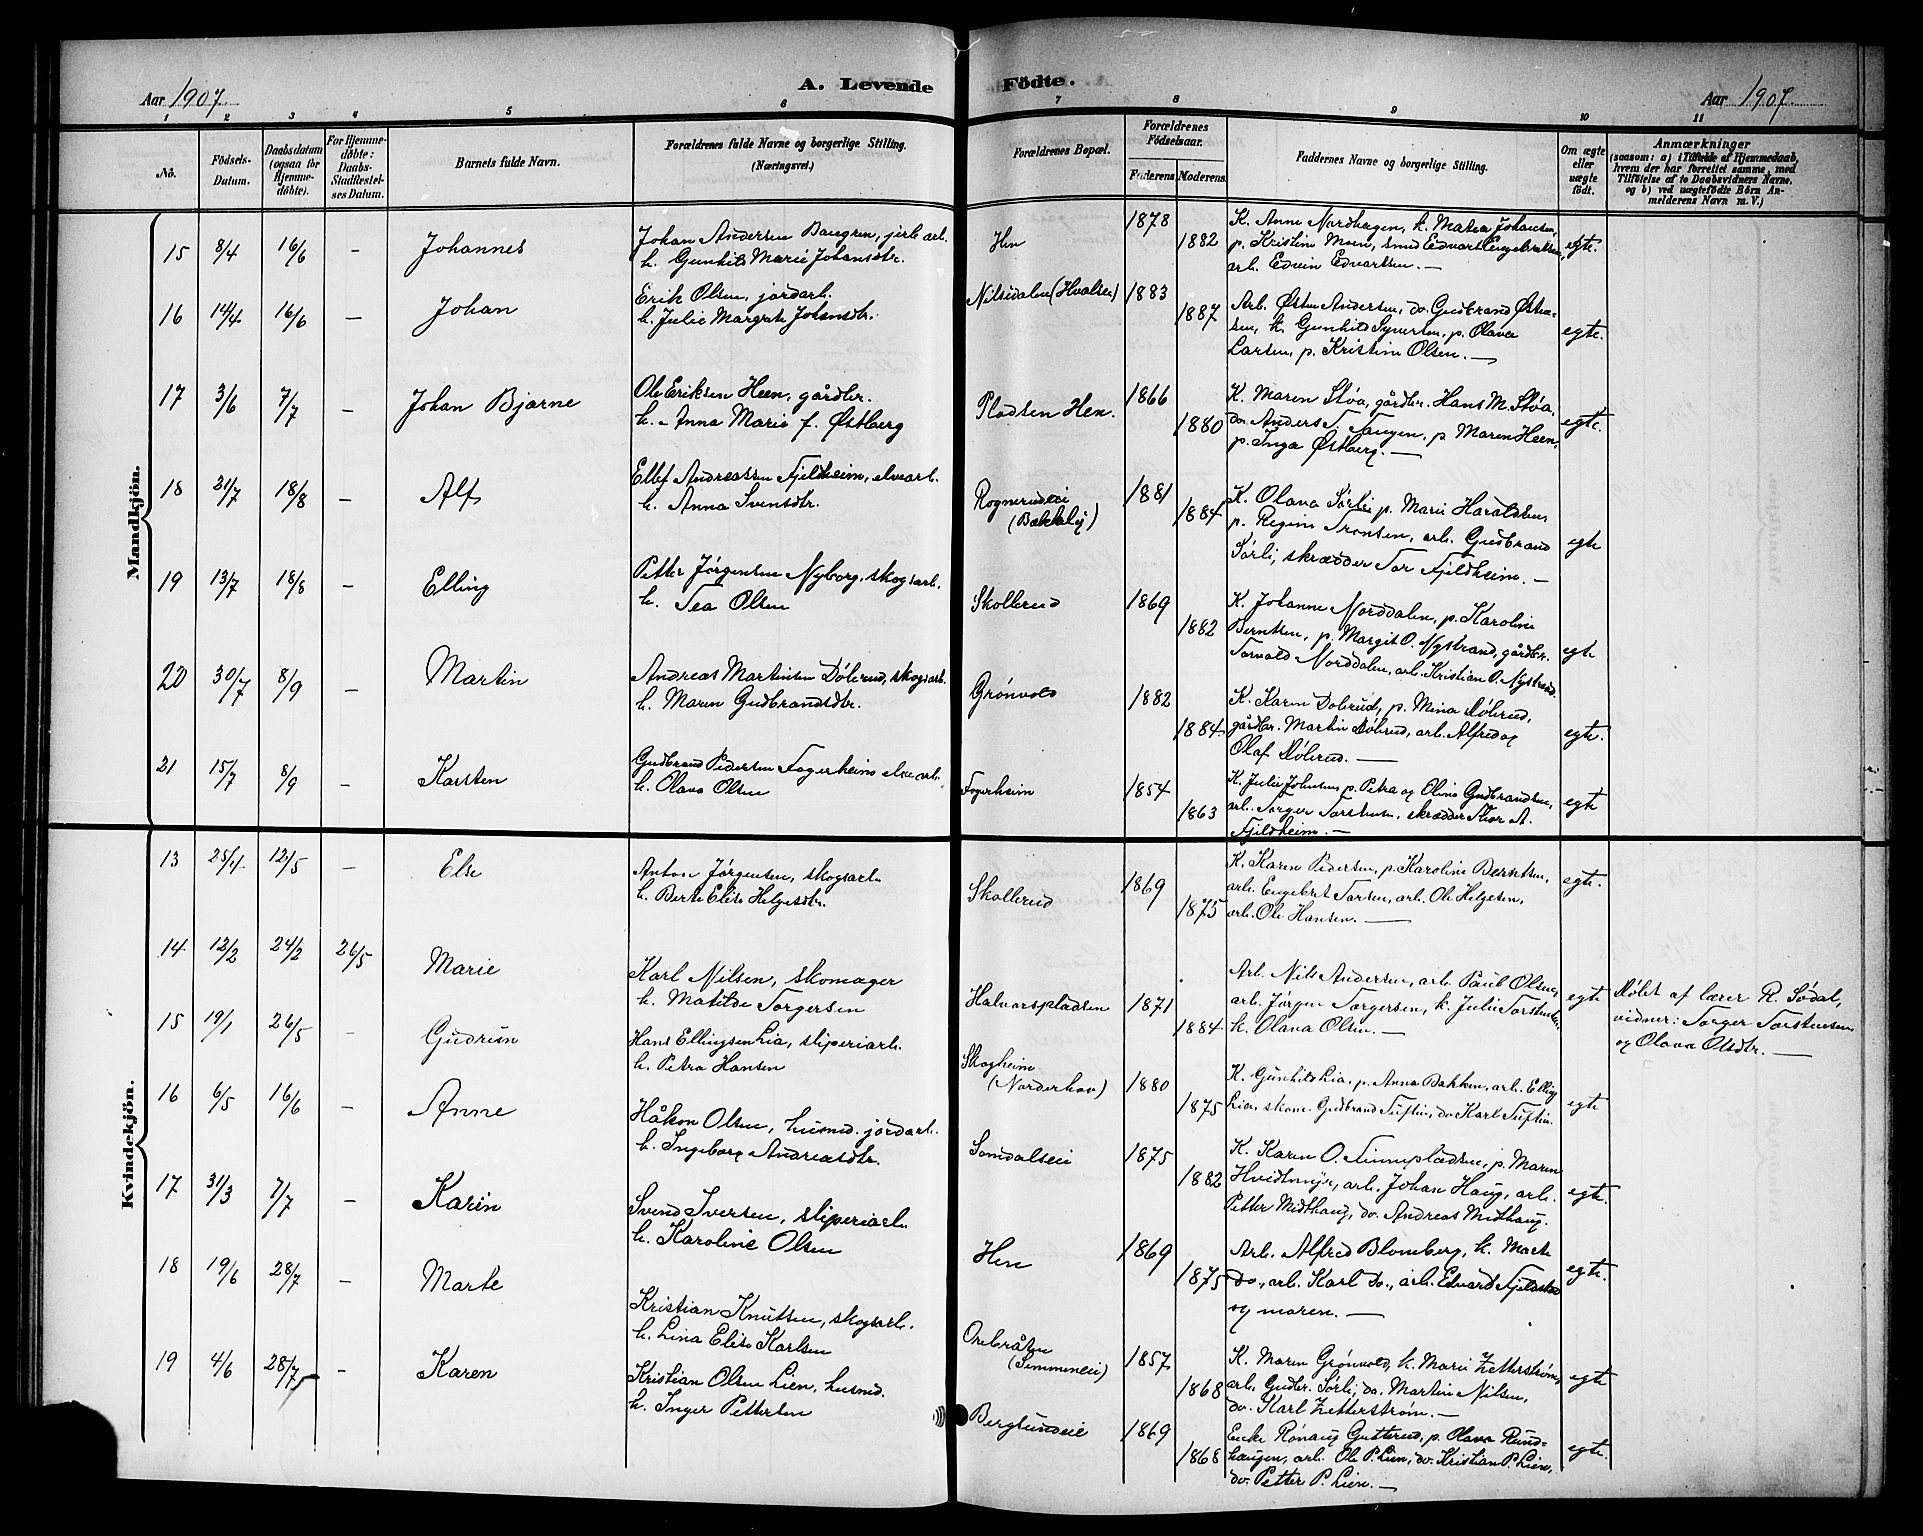 Aar 1907.
A. Levende Födte.
Aar 1907.
1 2 3 4 5 6 7 8 9 10 11
No.
Födsels-Datum.
Daabsdatum (ogsaa for Hjemmedöbte).
For Hjemmedöbte: Daabs-Stadfæstelses Datum.
Barnets fulde Navn.
Forældrenes fulde Navne og borgerlige Stilling.
(Næringsvei.)
Forældrenes Bopæl.
Forældrenes Födselsaar.
Faderens. Moderens.
Faddernes Navne og borgerlige Stilling.
Om ægte eller uægte födt.
Anmærkninger
(saasom: a) i Tilfælde af Hjemmedaab,
hvem der har forrettet samme, med
Tilföielse af to Daabsvidners Navne,
og b) ved uægtefödte Börn Anmelderens Navn m. V.)
Mandkjön.
15 8/4 16/6 — Johannes
Johan Andersen Baugen, jerb.arb.
h. Gunhild Marie Johansdtr.
Hen 1878 1882
K. Anne Nordhagen, k. Matea Johansen,
p. Kristine Moen, smed Edvart Engebretsen,
arb. Edvin Edvartsen. —
egte.
16 14/4 16/6 — Johan
Erik Olsen, jordarb.
h. Julie Margrete Johansdtr.
Nilsedalen (Hvalsen) 1883 1887
Arb. Østen Andersen, do. Gudbrand Østen-
sen, k. Gunhild Syversen, p. Olava
Larsen, p. Kristine Olsen. —
egte.
17 3/6 7/7 — Johan Bjarne
Ole Eriksen Heen, gårdbr.
h. Anna Marie f. Østberg
Pladsen Hen. 1866 1880
K. Maren Støa, gårdbr. Hans M. Støa,
do. Anders T. Tangen, p. Maren Heen,
p. Inga Østberg. —
egte.
18 31/7 18/8 — Alf
Ellef Andreassen Fjeldheim, elvearb.
h. Anna Svensdtr.
Rognerudeie
(Bakkely) 1881 1884
K. Olava Sørli, p. Marie Haraldsen,
p. Regine Tronsen, arb. Gudbrand
Sørli, skrædder Tor Fjeldheim. —
egte
19 13/7 18/8 — Elling
Petter Jørgensen Nyborg, skogsarb.
h. Tea Olsen
Skollerud 1869 1882
K. Johanne Norddalen, p. Karoline
Berntsen, p. Margit O. Nystrand, gårdbr.
Torvald Norddalen, arb. Kristian O. Nystrand.
egte
20 30/7 8/9 — Martin
Andreas Martinsen Dølerud, skogsarb.
h. Maren Gudbrandsdtr.
Grønvold 1882 1884
K. Karen Dølerud, p. Mina Dølerud,
gårdbr. Martin Dølerud, arb. Alfred og
Olaf Dølerud. —
egte.
21 15/7 8/9 — Karsten
Gudbrand Pedersen Fagerheim elvearb.
h. Olava Olsen
Fagerheim 1854 1863
K. Julie Johnsen, p. Petra og Oline Gudbrandsen,
arb. Torger Torstensen, skrædder Thor A.
Fjeldheim. —
egte
Kvindekjön.
13 25/4 12/5 — Else
Anton Jørgensen, skogsarb.
h. Berte Elise Helgesdtr.
Skollerud 1869 1875
K. Karen Pedersen, p. Karoline Berntsen,
arb. Engebret Torsen, arb. Ole Helgesen,
arb. Ole Hansen. —
egte.
14 12/2 24/2 26/5 Marie
Karl Nilsen, skomager
h. Matilde Torgersen
Halvorspladsen 1871 1884
Arb. Nils Andersen, arb. Paul Olsen,
arb. Jørgen Torgersen, k. Julie Torstensen,
k. Olava Olsen. —
egte
Døbt af lærer R. Sødal,
vidner: Torger Torstensen
og Olava Olsdtr. —
15 19/1 26/5 — Gudrun
Hans Ellingsen Lia, sliperiarb.
h. Petra Hansen
Skogheim
(Norderhov) 1880 1875
K. Gunhild Lia, p. Anna Bakken, arb. Elling
Lien, skom. Gudbrand Tuftin, do. Karl Tuftin.
egte
16 6/5 16/6 — Anne
Håkon Olsen, husmd. jordarb.
h. Ingeborg Andreasdtr.
Somdalseie 1875 1882
K. Karen O. Finnepladsen, p. Maren
Hvidtmyr, arb. Johan Haug, arb.
Petter Midthaug, do. Andreas Midthaug.
egte.
17 31/3 7/7 — Karin
Svend Iversen, sliperiarb.
h. Karoline Olsen
Hen 1869 1875
Arb. Alfred Blomberg, k. Marte
do., arb. Karl do., arb. Edvard Fjeldstad
og maren. —
egte.
18 19/6 28/7 — Marte
Kristian Knutsen, skogsarb.
h. Lina Elise Karlsen
Orebråten
(Semmeneie) 1857 1868
K. Maren Grønvold, k. Marie Zetterstrøm,
arb. Gudbr. Sørli, do. Martin Nilsen,
do. Karl Zetterstrøm. —
egte
19 4/6 28/7 — Karen
Kristian Olsen Lien, husmd.
h. Inger Pettersen
Berglundeie 1869 1868
Enke Rønaug Gutterud, p. Olava Rund-
haugen, arb. Ole P. Lien, do. Kristian P. Lien,
do. Petter P. Lien. —
egte.